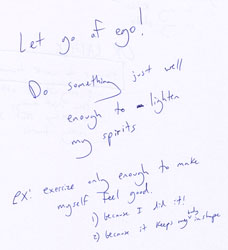 Let go of ego!
Do something just well
enough to lighten
my spirits
ex: exersize only enough to make
myself feel good.
1) because I did it!
2) because it keeps my body in shape